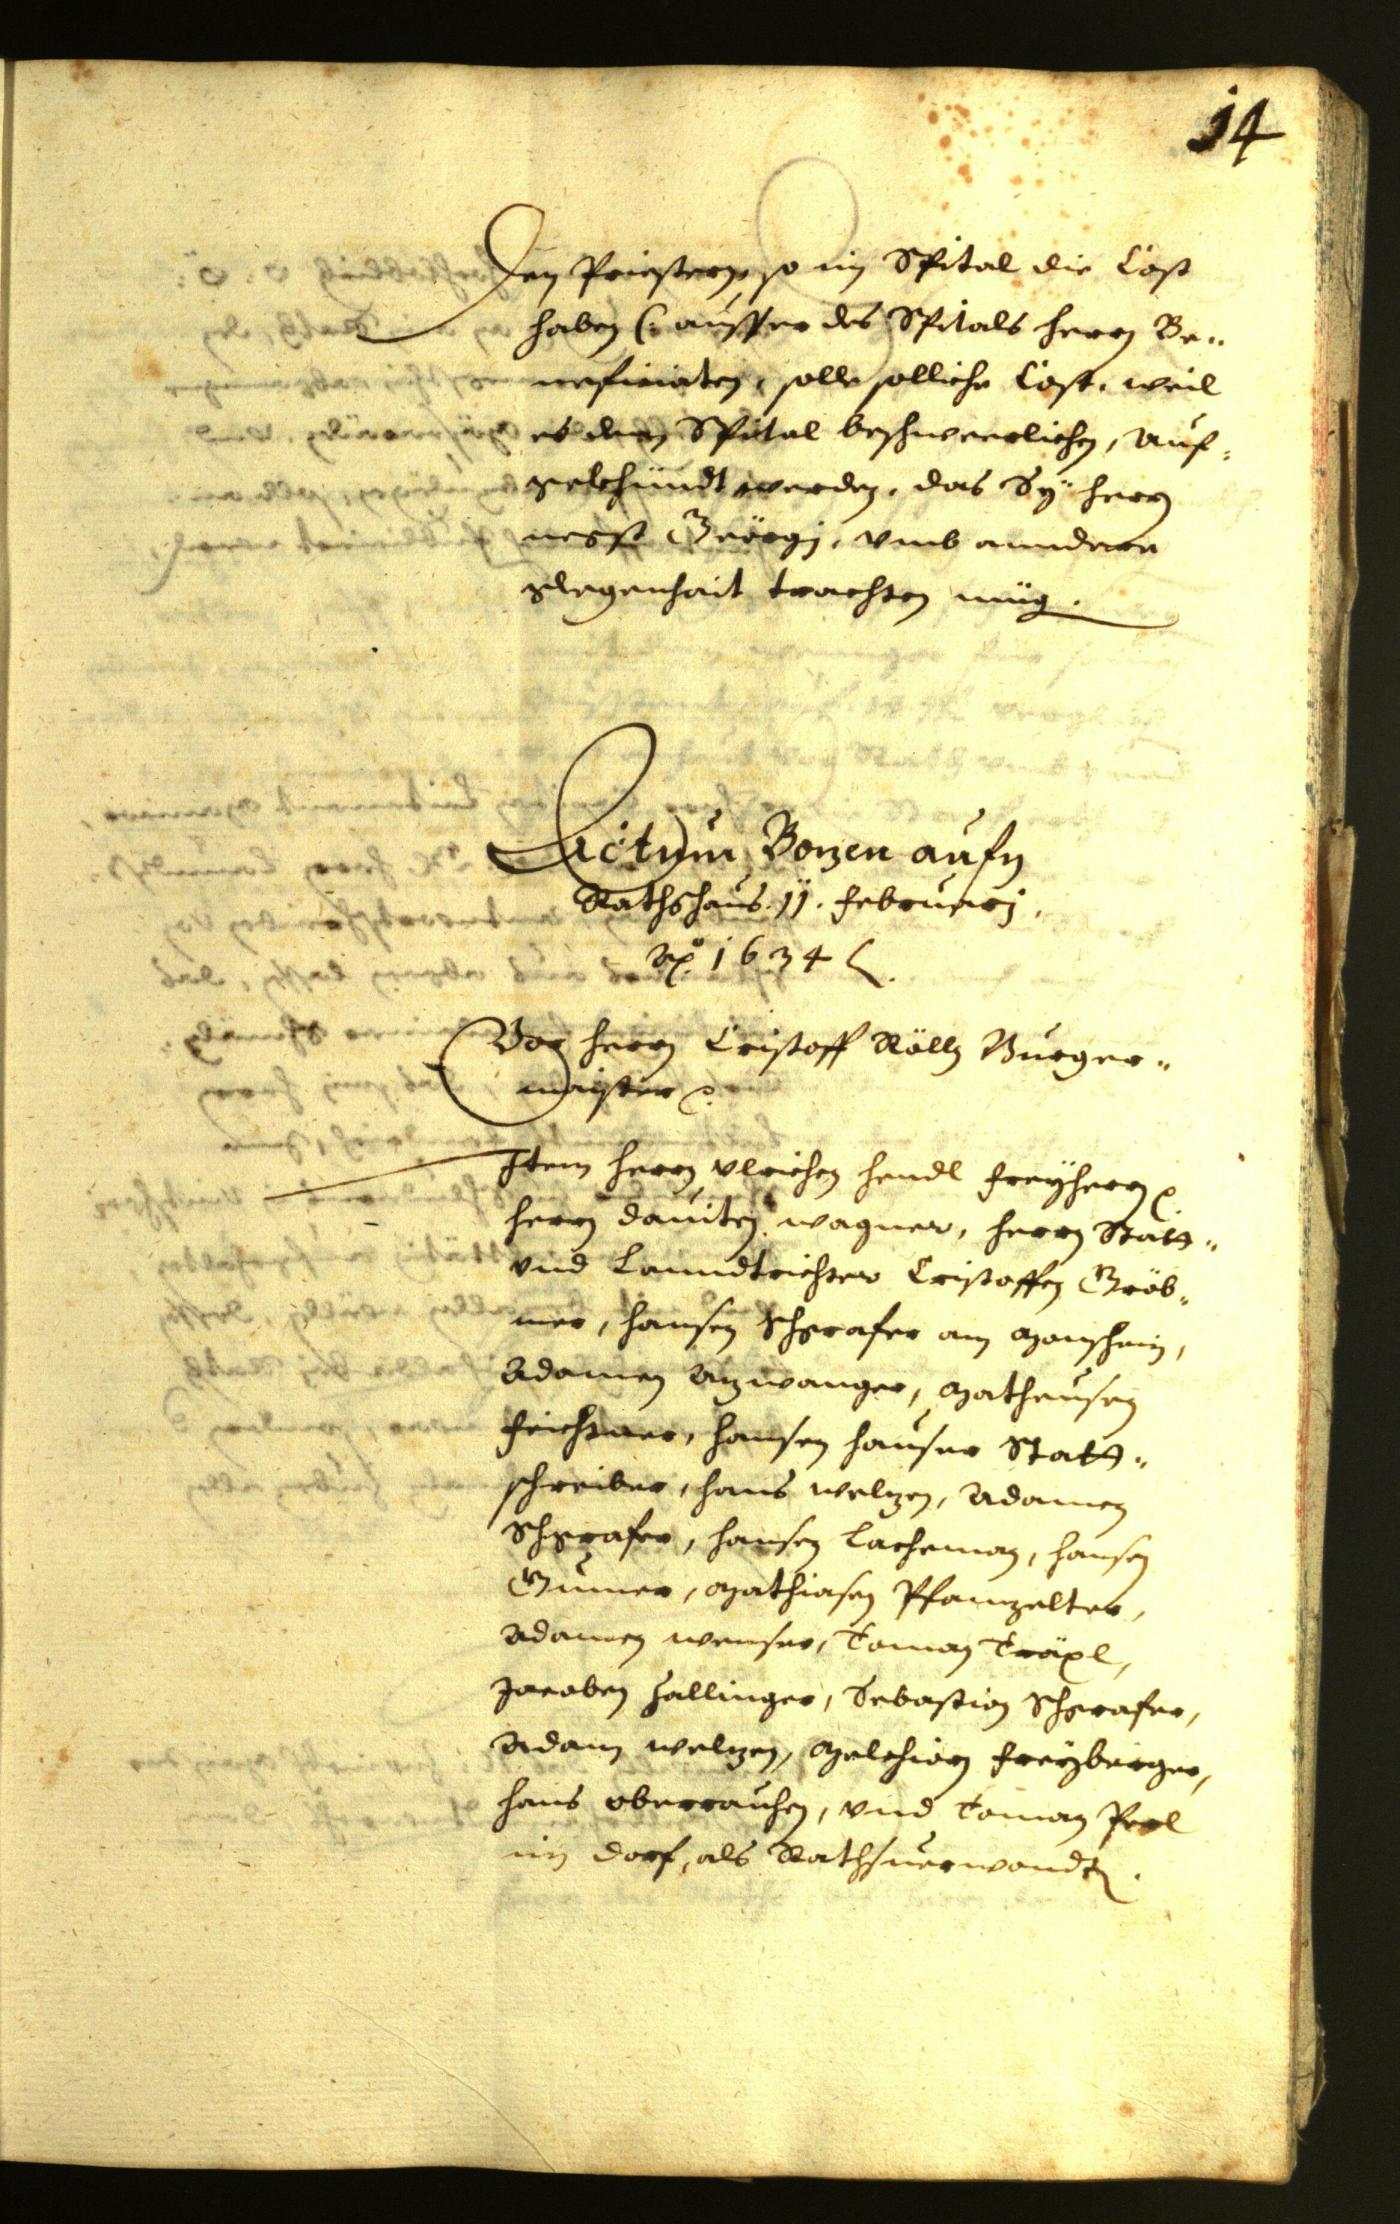 14
Den Priestern, so im Spital die Cost
haben (: ausser des Spitals herrn Be-
neficiaten, solle solliche Cost, weil
es dem Spital beschwerlichen, auf-
gekhündt werden, das Sy herrn
negst Geörgi, vmb anndere
glegenhait trachten müg.
Actum Bozen aufm
Rathshaus .11. Februarj.
Ao. 1634
Vor herrn Cristoff Röllg Burger-
maister
Item herrn Vlrichen Hendl Freyherrn
herrn Dauiten Wagner, herrn Statt-
vnd Lanndtrichter Cristoffen Gröb-
mer, Hansen Schgrafer am
Adamen Azwanger, Matheusen
Feichtner, Hansen Hauser Statt-
schreiber, Hans Welzen, Adamen
Schgrafer, Hansen Lacheman, Hansen
Gumer, Mathiasen Pfanzelter,
Adamen Wenser, Toman Träxl,
Jacoben Zallinger, Sebastian Schgrafer,
Adam Welzen, Melchiorn Freyberger,
Hans Oberrauchen, vnd Toman Perl
im Dorf, als Rathsuerwandt.